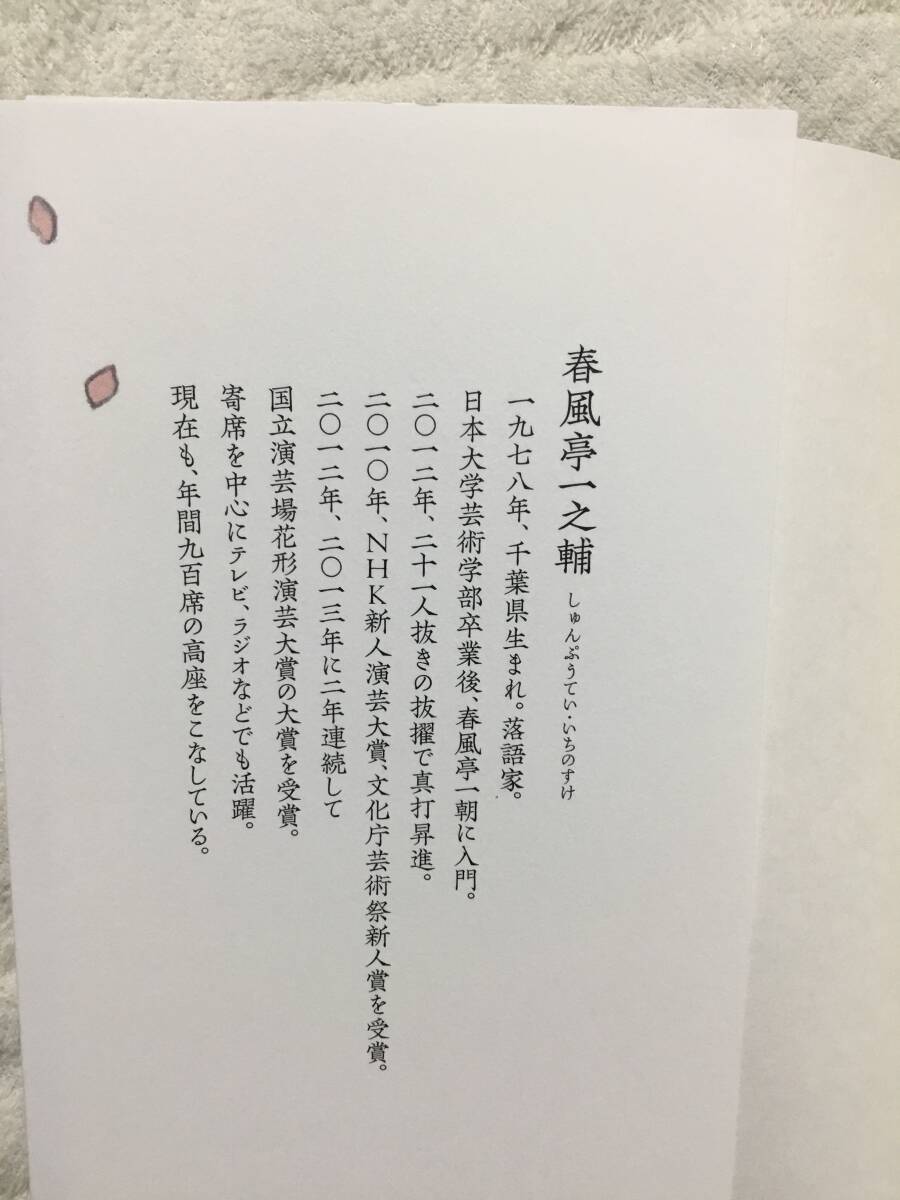 春風亭一之輔 しゅんぷうてい・いちのすけ
一九七八年、千葉県生まれ。落語家。
日本大学芸術学部卒業後、春風亭一朝に入門。
二〇一二年、二十一人抜きの抜擢で真打昇進。
二〇一〇年、NHK新人演芸大賞、文化庁芸術祭新人賞を受賞。
二〇一二年、二〇一三年に二年連続して
国立演芸場花形演芸大賞の大賞を受賞。
寄席を中心にテレビ、ラジオなどでも活躍。
現在も、年間九百席の高座をこなしている。